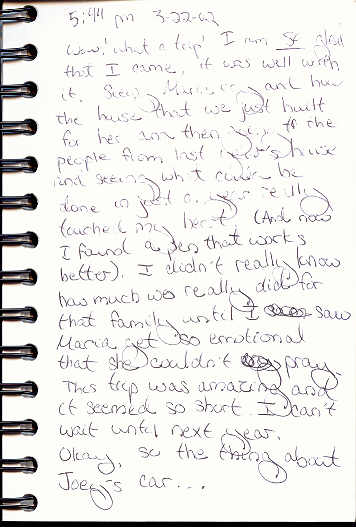 5:44 pm 3-22-02
Wow! what a trip! I am so glad
that I came, it was well worth
it. Seeing Maria and how
the house that we just built
for her and then the
people from last year's house
and seeing what could be
done in just a year really
touched my heart (And now
I found a pen that works
better). I didn't really know
how much we really did for
that family until I saw
Maria get so emotional
that she couldn't pray.
This trip was amazing and
it seemed so short. I can't
wait until next year.
Okay, so the thing about
Joey's car...